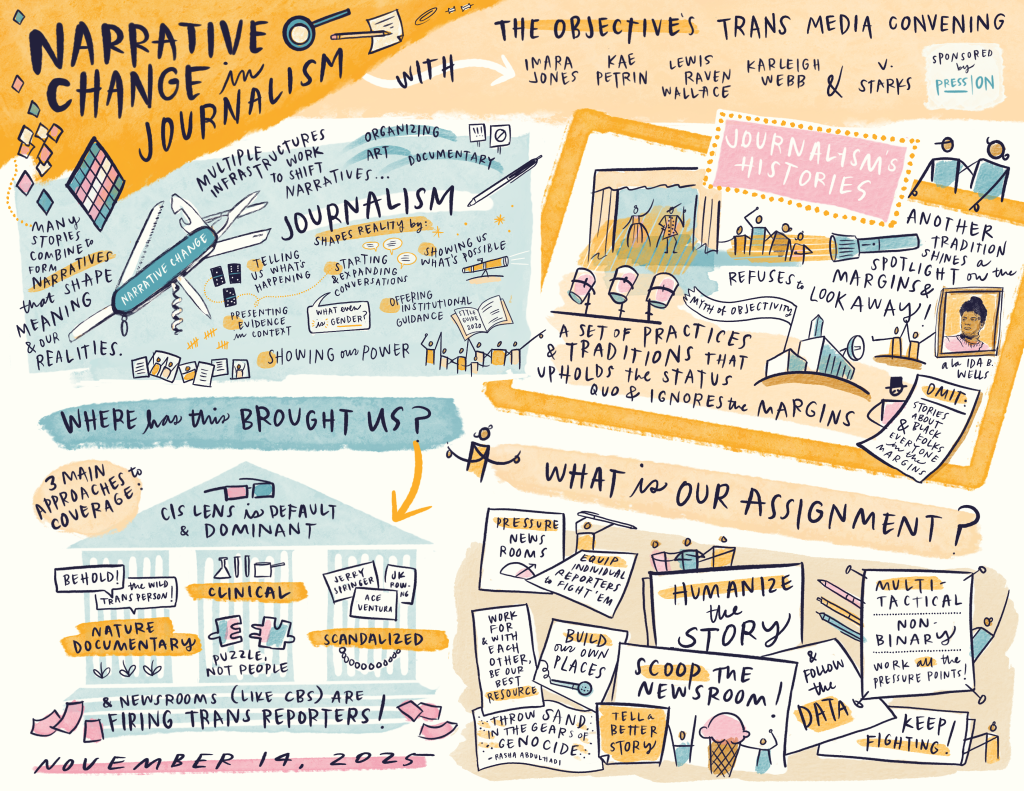 NARRATIVE
CHANGE in
JOURNALISM
WITH
THE OBJECTIVE'S TRANS MEDIA CONVENING
IMARA
JONES
KAE
PETRIN
LEWIS
RAVEN
WALLACE
KARLEIGH
WEBB
&
V.
STARKS
SPONSORED
by
PRESS|ON
MANY
STORIES
COMBINE to
FORM
NARRATIVES
that SHAPE
MEANING
& OUR
REALITIES.
NARRATIVE CHANGE
MULTIPLE
INFRASTRUCTURES
WORK
TO SHIFT
NARRATIVES...
ORGANIZING
ART
DOCUMENTARY
JOURNALISM
SHAPES REALITY by:
TELLING
US WHAT'S
HAPPENING
STARTING
& EXPANDING
CONVERSATIONS
SHOWING US
WHAT'S POSSIBLE
PRESENTING
EVIDENCE
in CONTEXT
WHAT even
is GENDER?
OFFERING
INSTITUTIONAL
GUIDANCE
STYLE
GUIDE
2020
SHOWING our POWER
JOURNALISM'S
HISTORIES
REFUSES to
LOOK AWAY!
ANOTHER
TRADITION
SHINES a
SPOTLIGHT on the
MARGINS &
MYTH of OBJECTIVITY
A SET of PRACTICES
& TRADITIONS THAT
UPHOLDS the STATUS
QUO & IGNORES the MARGINS
a la IDA B.
WELLS
OMIT:
STORIES
ABOUT
BLACK
FOLKS
& EVERYONE
in the
MARGINS
WHERE has this BROUGHT US?
3 MAIN
APPROACHES to
COVERAGE:
CIS LENS is DEFAULT
& DOMINANT
BEHOLD!
the WILD
TRANS PERSON!
NATURE
DOCUMENTARY
CLINICAL
PUZZLE,
NOT PEOPLE
JERRY
SPRINGER
JK
ROW-
NG
ACE
VENTURA
SCANDALIZED
& NEWSROOMS (LIKE CBS) ARE
FIRING TRANS REPORTERS!
NOVEMBER 14, 2025
WHAT is OUR ASSIGNMENT?
PRESSURE
NEWS
ROOMS
EQUIP
INDIVIDUAL
REPORTERS
to FIGHT 'EM
HUMANIZE
the
STORY
MULTI-
TACTICAL
NON-
BINARY
WORK all the
PRESSURE POINTS!
WORK
FOR
& WITH
EACH
OTHER,
BE OUR
BEST
RESOURCE
BUILD
our OWN
PLACES
SCOOP THE
NEWSROOM!
& FOLLOW
the
DATA
THROW SAND
IN THE GEARS of
GENOCIDE
- RASHA ABDULHADI
TELL a
BETTER
STORY
KEEP
FIGHTING.